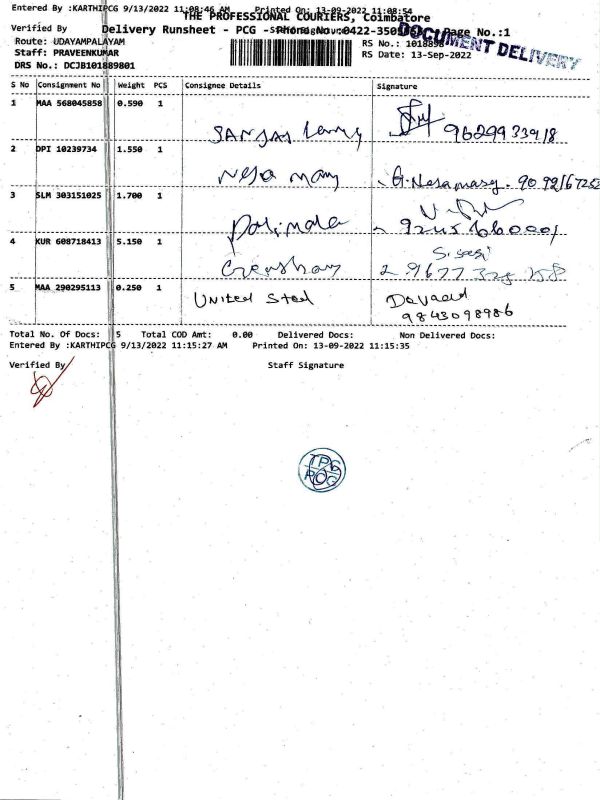 Entered By :KARTHIPCG 9/13/2022 11:08:46 AM Printed On: 13-09-2022 11:08:54
THE PROFESSIONAL COURIERS, Coimbatore
Verified By
Delivery Runsheet - PCG - Phone No.:0422-350 Page No.:1
DOCUMENT DELIVERY
Route: UDAYAMPALAYAM
RS No.: 1018898
Staff: PRAVEENKUMAR
RS Date: 13-Sep-2022
DRS No.: DCJB101889801
S No Consignment No Weight PCS Consignee Details Signature
1 MAA 568045858 0.590 1
9629933918
2 DPI 10239734 1.550 1
Nesa mary G.Nesamary. 90 92167252
3 SLM 303151025 1.700 1
Parimala
4 KUR 608718413 5.150 1
S.sasi
5 MAA 290295113 0.250 1
United Steel
9843098986
Total No. Of Docs: 5 Total COD Amt: 0.00 Delivered Docs: Non Delivered Docs:
Entered By :KARTHIPCG 9/13/2022 11:15:27 AM Printed On: 13-09-2022 11:15:35
Verified By Staff Signature
TPC